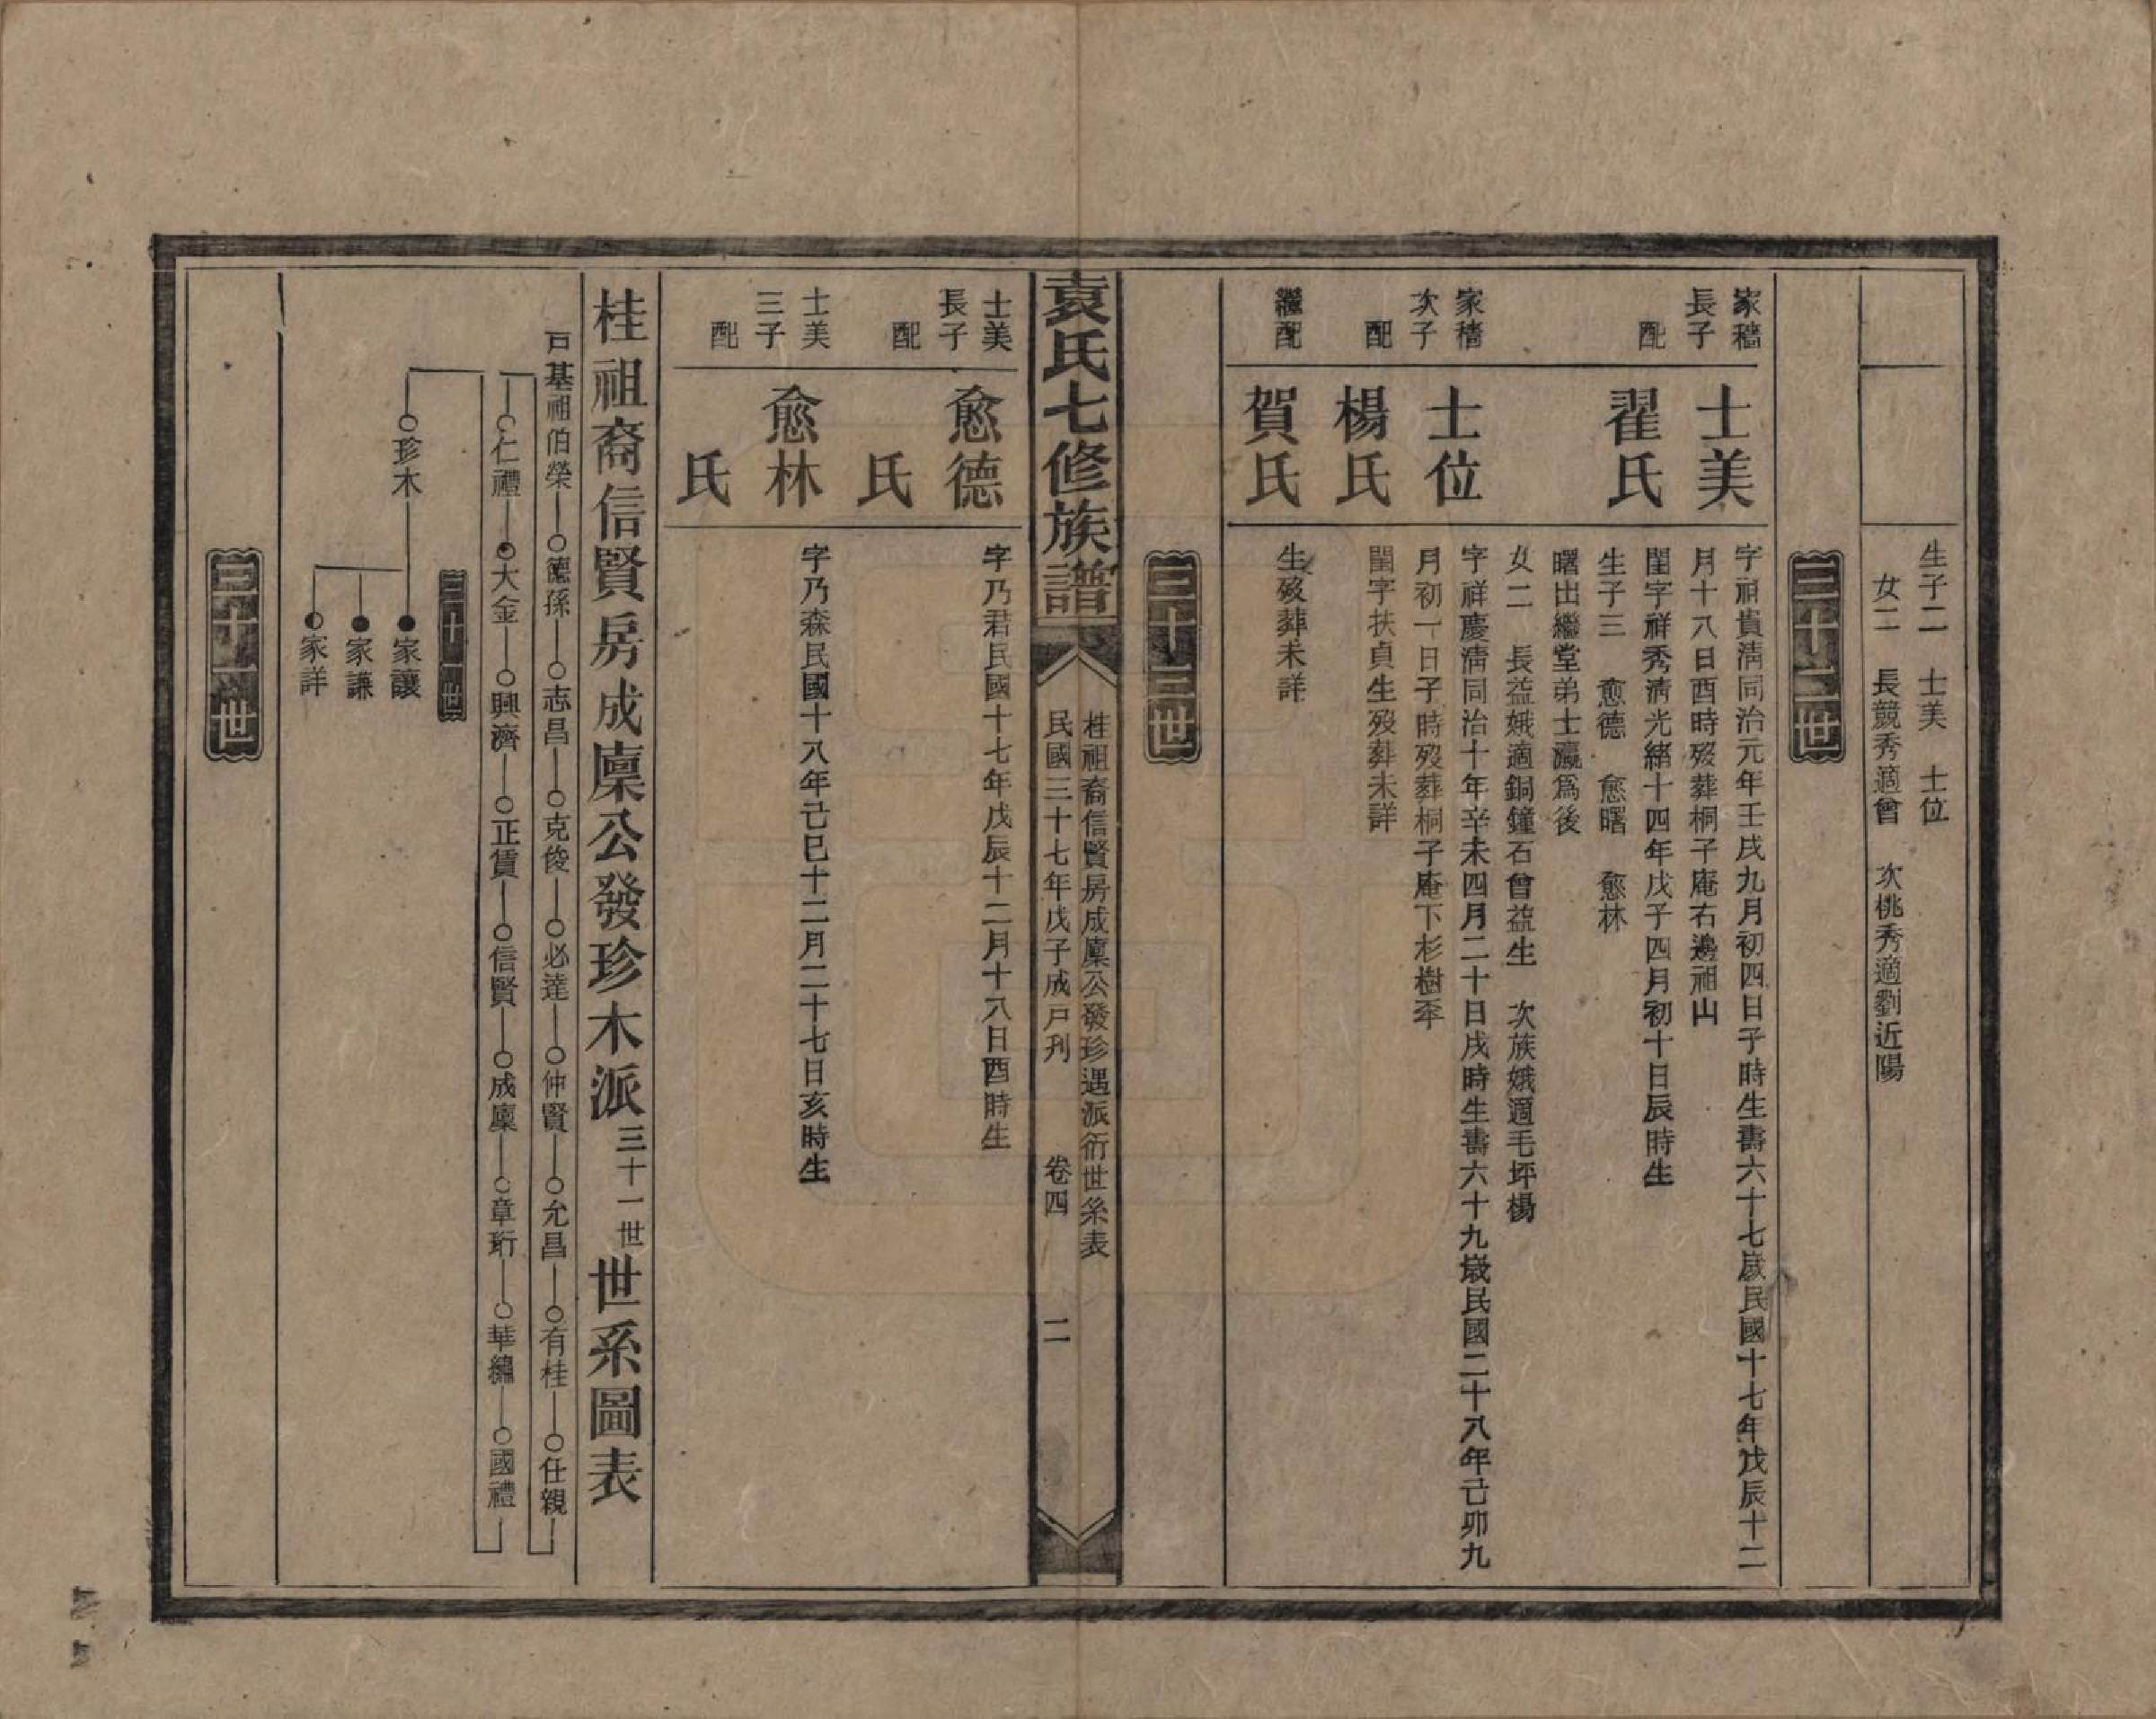 生子二　士美　士位
女二　長競秀適曾　次桃秀適劉近陽
三十二世
家穡長子　士美　字祖貴清同治元年壬戌九月初四日子時生壽六十七歲民國十七年戊辰十二
月十八日酉時歿葬桐子庵右邊祖山
配　翟氏　閨字祥秀清光緒十四年戊子四月初十日辰時生
生子三　愈德　愈曙　愈林
曙出繼堂弟士瀛爲後
女二　長益娥適銅鐘石曾益生　次族娥適毛坪楊
家穡次子　士位　字祥慶清同治十年辛未四月二十日戌時生壽六十九歲民國二十八年己卯九
月初一日子時歿葬桐子庵下杉樹㘵
配　楊氏　閨字扶貞生歿葬未詳
繼配　賀氏　生歿葬未詳
三十三世
袁氏七修族譜
桂祖裔信賢房成廩公發珍遇派衍世系表
民國三十七年戊子成戶刋　卷四　二
士美長子　愈德　字乃君民國十七年戊辰十二月十八日酉時生
配　氏
士美三子　愈林　字乃森民國十八年己巳十二月二十七日亥時生
配　氏
桂祖裔信賢房成廩公發珍木派三十一世世系圖表
戶基祖伯榮　德孫　志昌　克俊　必達　仲賢　允昌　有桂　任親
仁禮　大金　興濟　正賃　信賢　成廩　章珩　華繡　國禮
三十一世
珍木　家讓
家謙
家詳
三十一世